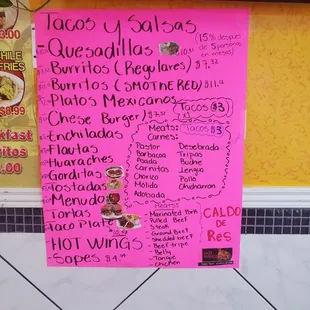 Tacos y Salsas
Quesadillas
(15% despues de 5 personas en mesas)
Burritos (Regulares) $7.32
Burritos (SMOTHERED) $11.
Platos Mexicanos
Tacos $3
Chese Burger
Enchiladas
Flautas
Huaraches
Gorditas
Tostadas
Menudo
Tortas
Taco Plate
HOT WINGS
Sopes $4.
Meats: Tacos $3
Carnes:
Pastor
Barbacoa
Asada
Carnitas
Chorizo
Molida
Adobada
Desebrada
Tripas
Buche
Lengua
Pollo
Chicharron
Meats:
- Marinated Pork
- Pulled Beef
- Steak
- Ground Beef
- Shedded beef
- Beef tripe
- Belly
- Tongue
- Chicken
CALDO
DE
Res
3.00
CHILE
FRIES
$8.99
fast
itos
.00